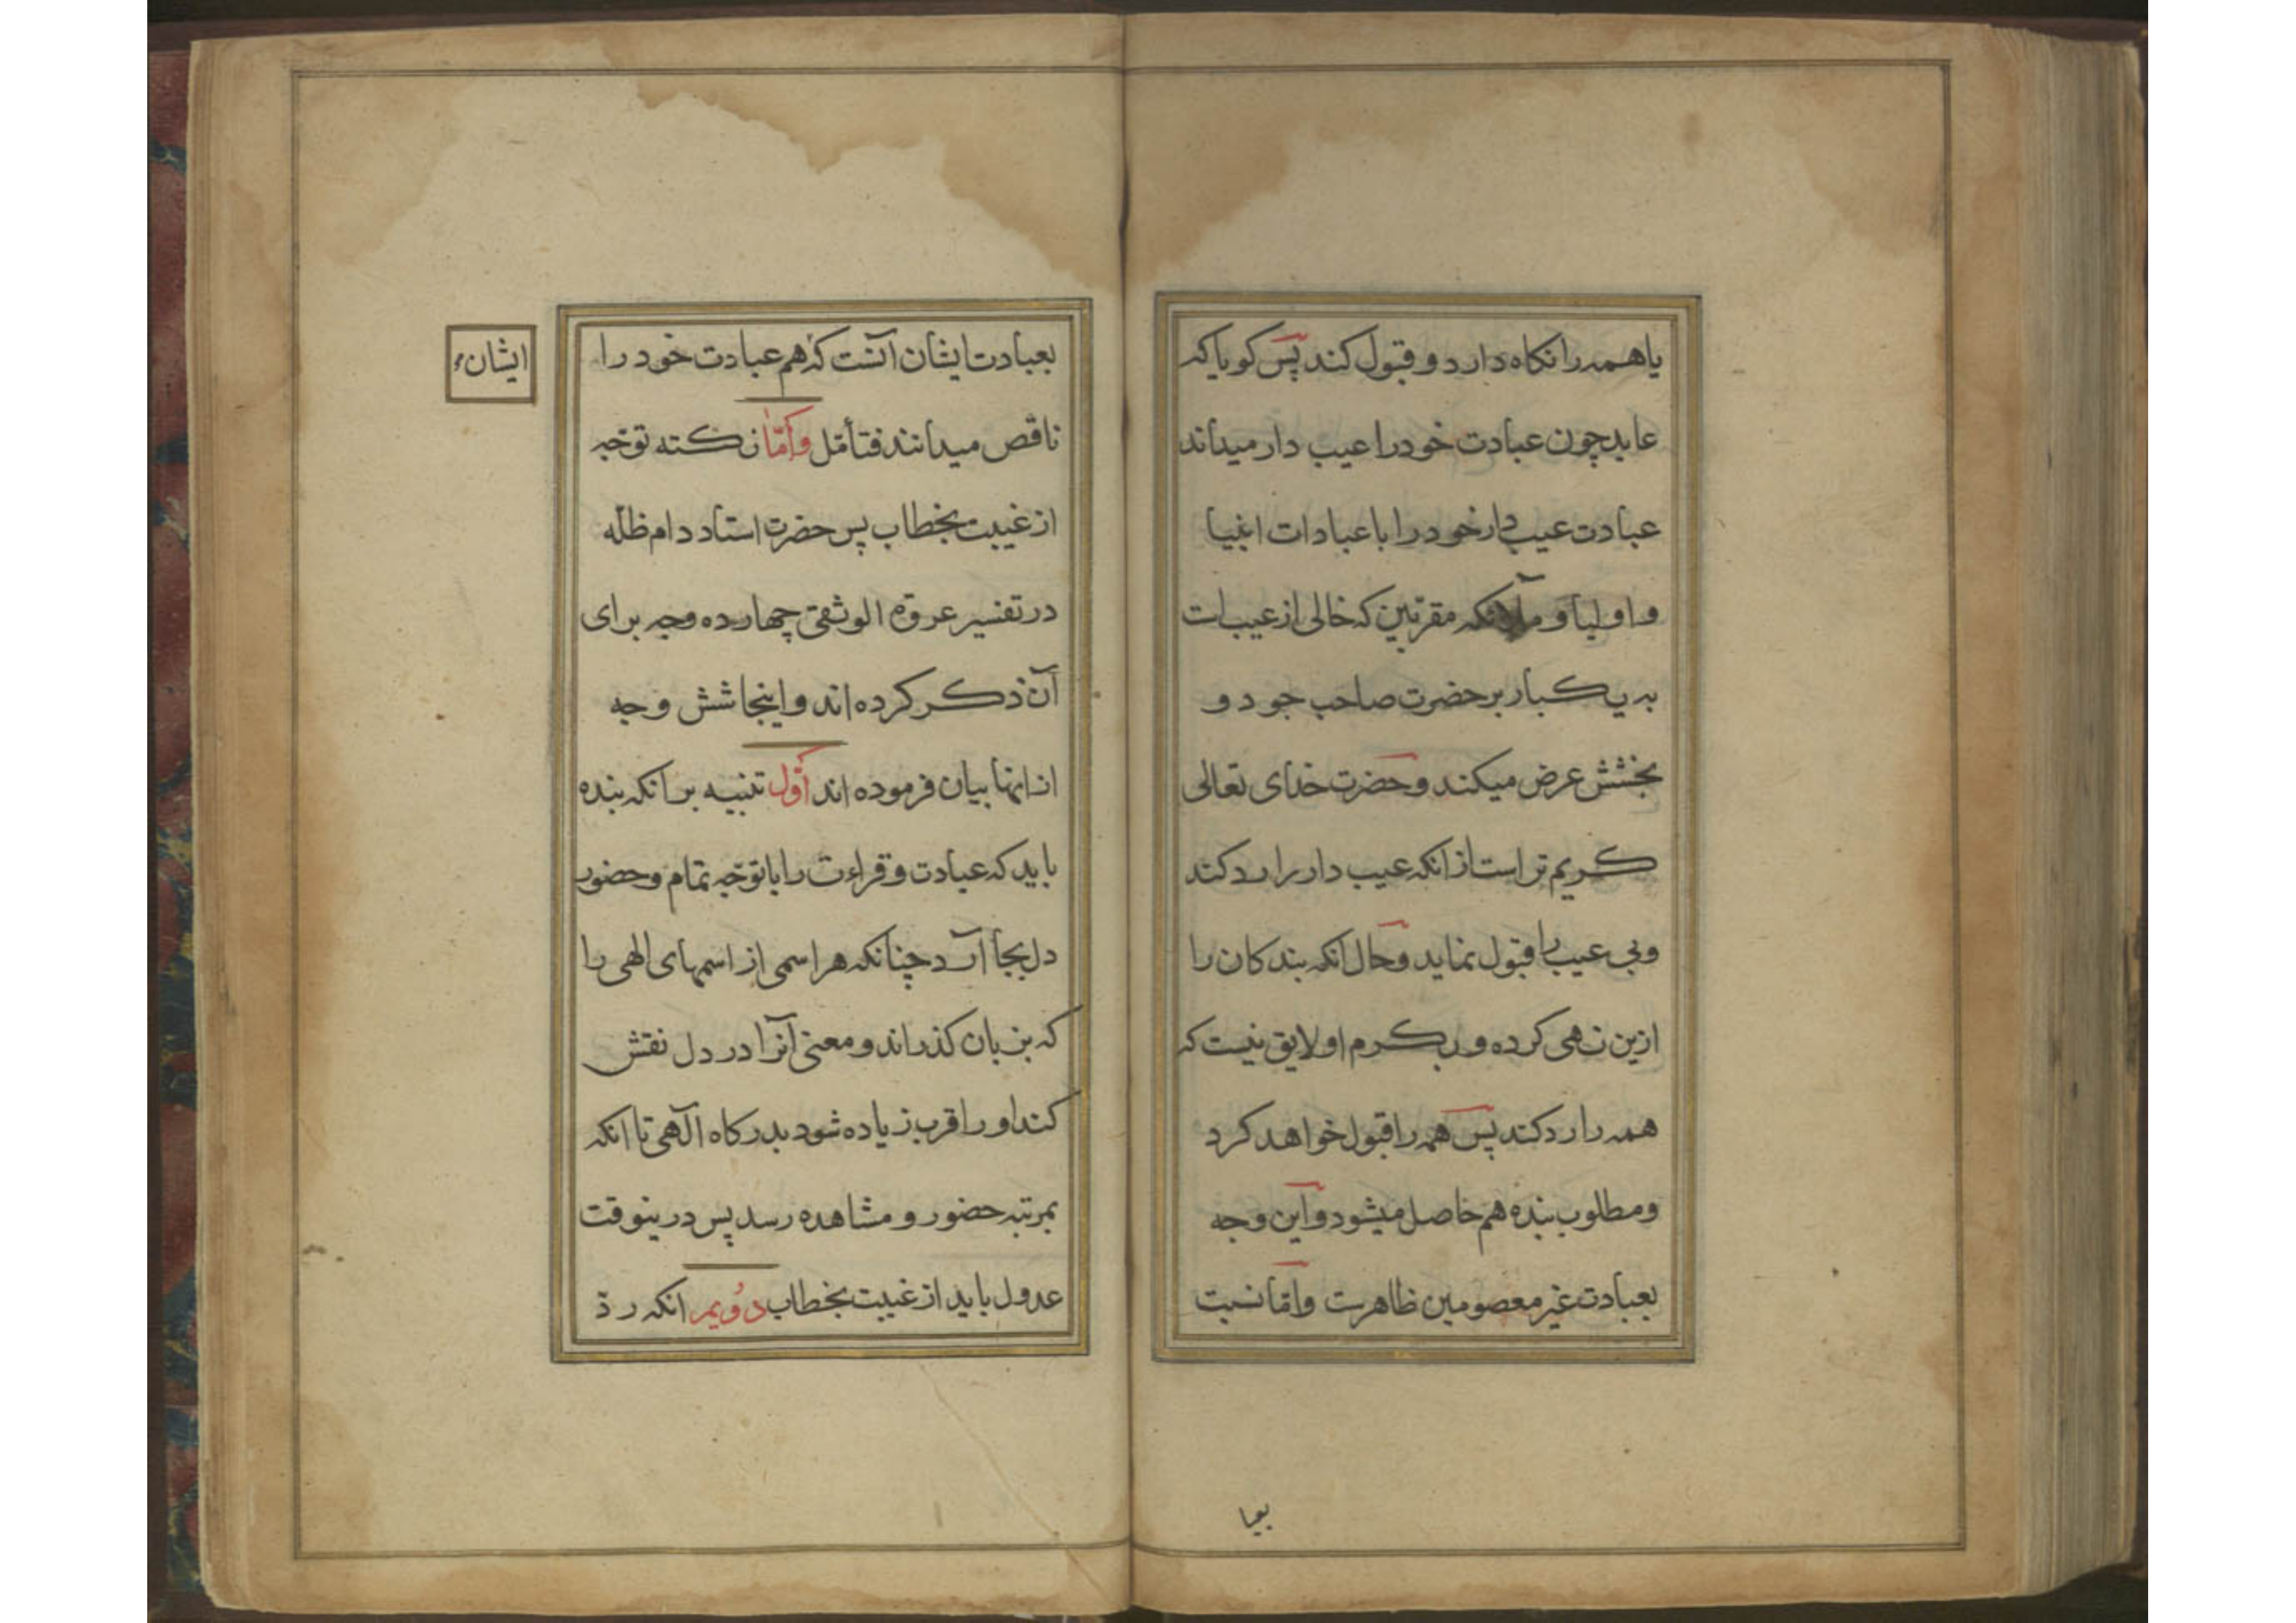 یا همه را نکاه دارد و قبول کند پس کویا که
عابد چون عبادت خود را عیب دار میداند
عبادت عیب دار خود را با عبادات انبیا
و اولیا و ملائکه مقربین که خالی از عیب است
به یکبار بر حضرت صاحب جود و
بخشش عرض میکند و حضرت خدای تعالی
کریم تر است از انکه عیب دار را رد کند
و بی عیب را قبول نماید و حال انکه بندکان را
ازین نهی کرده و بکرم او لایق نیست که
همه را رد کند پس همه را قبول خواهد کرد
و مطلوب بنده هم حاصل میشود و این وجه
بعبادت غیر معصومین ظاهرست و امّا نسبت
بعبا
بعبادت ایشان آنست که هم عبادت خود را
ایشان
ناقص میدانند فتأمّل و امّا نکته توجّه
از غیبت بخطاب پس حضرت استاد دام ظلّه
در تفسیر عروة الوثقی چهارده وجه برای
آن ذکر کرده اند و اینجا شش وجه
از انها بیان فرموده اند اوّل تنبیه بر انکه بنده
باید که عبادت و قراءت را با توجّه تمام و حضور
دل بجا آرد چنانکه هر اسمی از اسمهای الهی را
که بزبان کذراند و معنی آنرا در دل نقش
کند او را قرب زیاده شود بدرکاه آلهی تا انکه
بمرتبه حضور و مشاهده رسد پس درینوقت
عدول باید از غیبت بخطاب دویم انکه ردّ